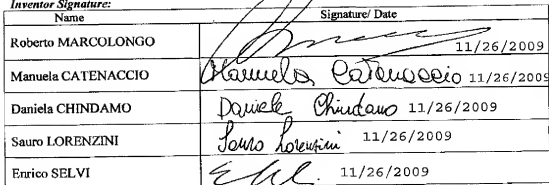 Inventor Signature:
Name Signature/ Date
Roberto MARCOLONGO 11/26/2009
Manuela CATENACCIO Manuela Catenaccio 11/26/2009
Daniela CHINDAMO Daniele Chindamo 11/26/2009
Sauro LORENZINI Sauro Lorenzini 11/26/2009
Enrico SELVI 11/26/2009